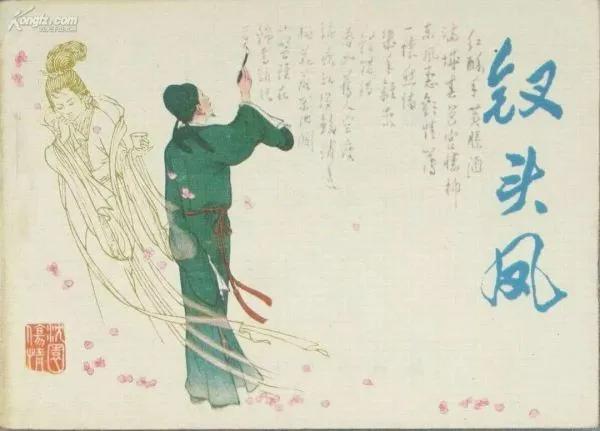 Kongfz.com
钗头凤
红酥手黄縢酒
满城春色宫墙柳
东风恶欢情薄
一怀愁绪
几年离索
错错错
春如旧人空瘦
泪痕红浥鲛绡透
桃花落闲池阁
山盟虽在
锦书难托
沈園傷情